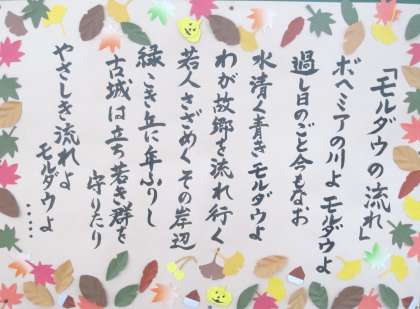 「モルダウの流れ」
ボヘミアの川よ モルダウよ
過し日のごと今もなお
水清く青き モルダウよ
わが故郷を流れ行く
若人さざめくその岸辺
緑こき丘に年ふりし
古城は立ち 若き群を
守りたり
やさしき流れよ
モルダウよ‥‥‥